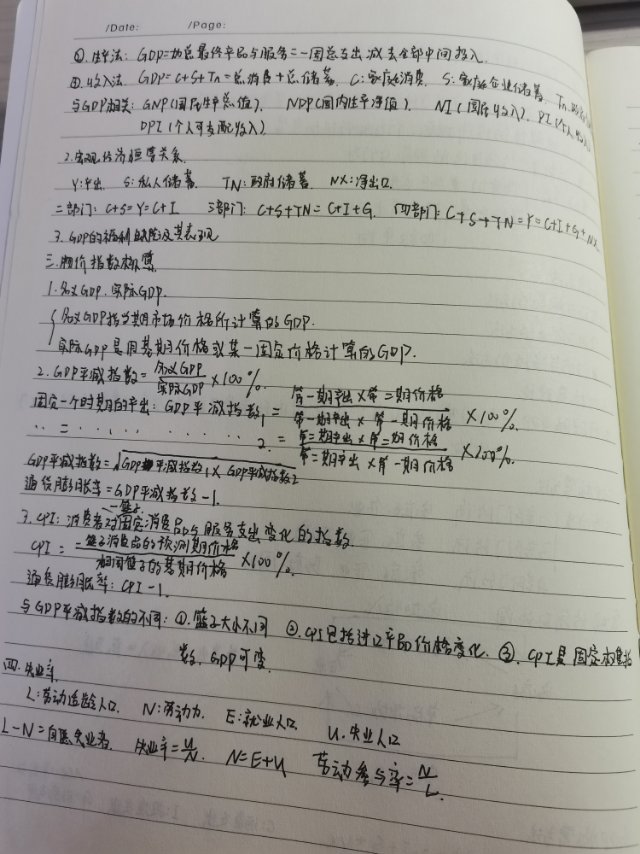 /Date: /Page:
③.生产法: GDP=加总最终产品与服务=一国总支出减去全部中间投入.
④.收入法 GDP=C+S+Tn=总消费+总储蓄. C:家庭消费. S:家庭企业储蓄. Tn.政府
与GDP相关: GNP(国民生产总值). NDP(国内生产净值). NI(国民收入). PI(个人收入)
DPI(个人可支配收入)
2.宏观经济恒等关系.
Y:产出. S:私人储蓄. TN:政府储蓄. NX:净出口.
二部门: C+S=Y=C+I 三部门: C+S+TN=C+I+G. 四部门: C+S+TN=Y=C+I+G+NX.
3.GDP的福利缺陷及其表现
三.物价指数核算.
1.名义GDP.实际GDP.
名义GDP指当期市场价格所计算的GDP.
实际GDP是用基期价格或某一固定价格计算的GDP.
2.GDP平减指数=名义GDP/实际GDP×100%.
固定一个时期的产出: GDP平减指数1=第一期产出×第二期价格/第一期产出×第一期价格×100%
〃 二 〃 2=第二期产出×第二期价格/第二期产出×第一期价格×100%.
GDP平减指数=√GDP平减指数1×GDP平减指数2
通货膨胀率=GDP平减指数-1.
3.CPI:消费者对一篮子固定消费品与服务支出变化的指数.
CPI=一篮子消费品的预测期价格/相同篮子的基期价格×100%.
通货膨胀率: CPI-1.
与GDP平减指数的不同: ①.篮子大小不同 ②.CPI包括进口产品价格变化. ③.CPI是固定权重指
数. GDP可变.
四.失业率.
L:劳动适龄人口. N:劳动力. E:就业人口. U.失业人口
L-N=自愿失业者. 失业率=U/N. N=E+U 劳动参与率=N/L.